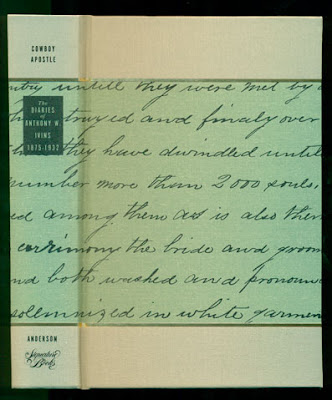 COWBOY
APOSTLE
The
DIARIES
of
ANTHONY W.
IVINS
1875-1932
ANDERSON
Signature
Books
untill they were met by
and finaly over
they have dwindled until
number more than 2000 souls,
ed among them as is also then
the bride and groom
nd both washed and pronoun
solemnized in white garmen